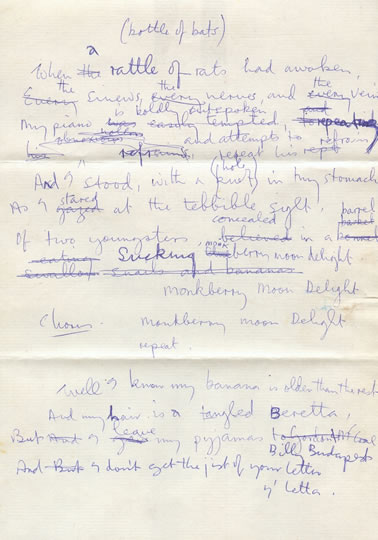 (bottle of bats)
a
When the rattle of rats had awoken,
the the the
Every sinews, every nerves, and every vein
is boldly outspoken and
My piano was easily tempted, to repeat
and attempts to
his refrains, repeat his rept refrains
(hole)
And I stood, with a knot in my stomach
stared
As I gazed at the tebbible sight,
concealed barrel
Of two youngsters, believed in a bonnet
eating Sucking monk berry moon delight
swallow snacks and bananas
Monkberry Moon Delight
Chorus. Monkberry moon Delight
repeat.
Well I know my banana is older than the rest
And my hair is a tangled Beretta,
leave
But And I my pyjamas to
Billy Budapest
And But I don't get the jist of your letter
y' letta.